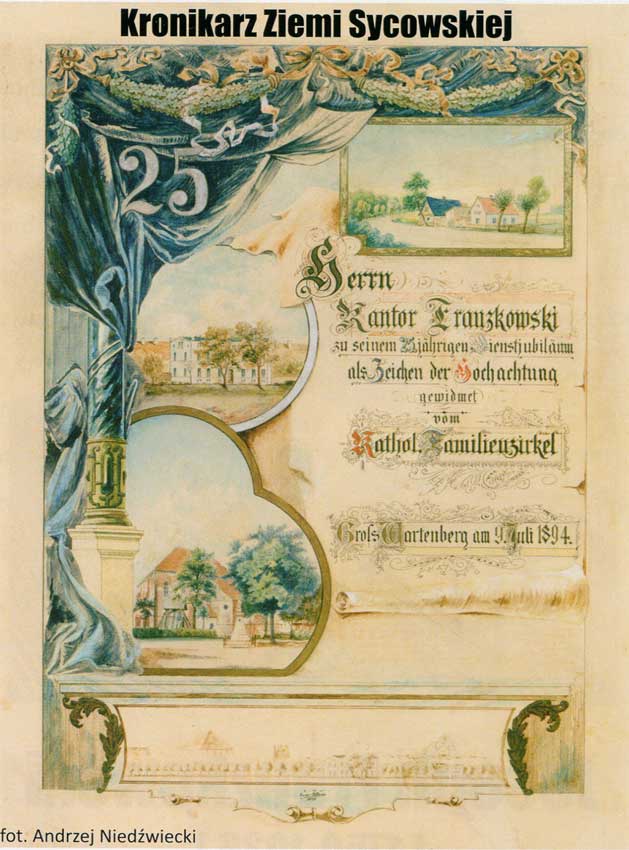 Kronikarz Ziemi Sycowskiej
25
Herrn
Kantor Franzkowski
zu seinem 25jährigen Dienstjubiläum
als Zeichen der Hochachtung
gewidmet
vom
Kathol. Familienzirkel
Gross Wartenberg am 9. Juli 1894.
fot. Andrzej Niedźwiecki